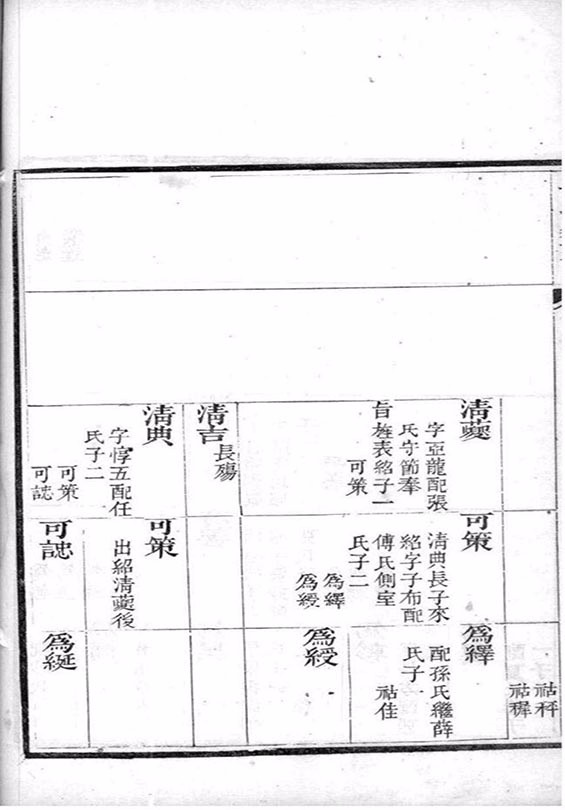 祜秤
祜樨
清夔
字亞龍配張
氏守節奉
旨旌表紹子一
可策
清吉
長殤
清典
字惇五配任
氏子二
可策
可誌
可策
清典長子來
紹字子布配
傅氏側室
氏子二
為繹
為綬
可策
出紹清夔後
可誌
為繹
配孫氏繼薛
氏子一
祜佳
為綬
為綖